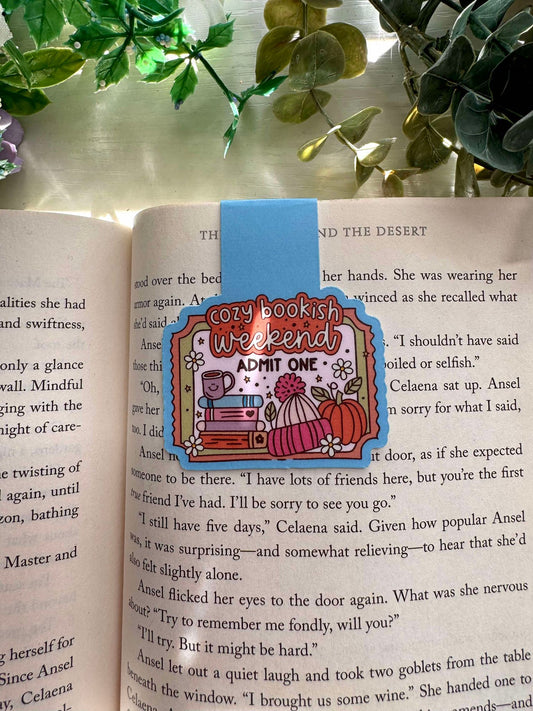 alities she had
and swiftness,
only a glance
wall. Mindful
ging with the
night of care-
e twisting of
l again, until
zon, bathing
Master and
g herself for
Since Ansel
ay, Celaena
TH ND THE DESERT
stood over the bed her hands. She was wearing her
armor again. At winced as she recalled what
she'd said
Anse s. “I shouldn't have said
those thi poiled or selfish.”
“Oh, Celaena sat up. Ansel
gave her m sorry for what I said,
too. I did
cozy bookish
weekend
ADMIT ONE
Ansel n at door, as if she expected
someone to be there. “I have lots of friends here, but you're the first
true friend I've had. I'll be sorry to see you go.”
“I still have five days,” Celaena said. Given how popular Ansel
was, it was surprising—and somewhat relieving—to hear that she'd
also felt slightly alone.
Ansel flicked her eyes to the door again. What was she nervous
about? “Try to remember me fondly, will you?”
“I'll try. But it might be hard.”
Ansel let out a quiet laugh and took two goblets from the table
beneath the window. “I brought us some wine.” She handed one to
Celaena mends—and